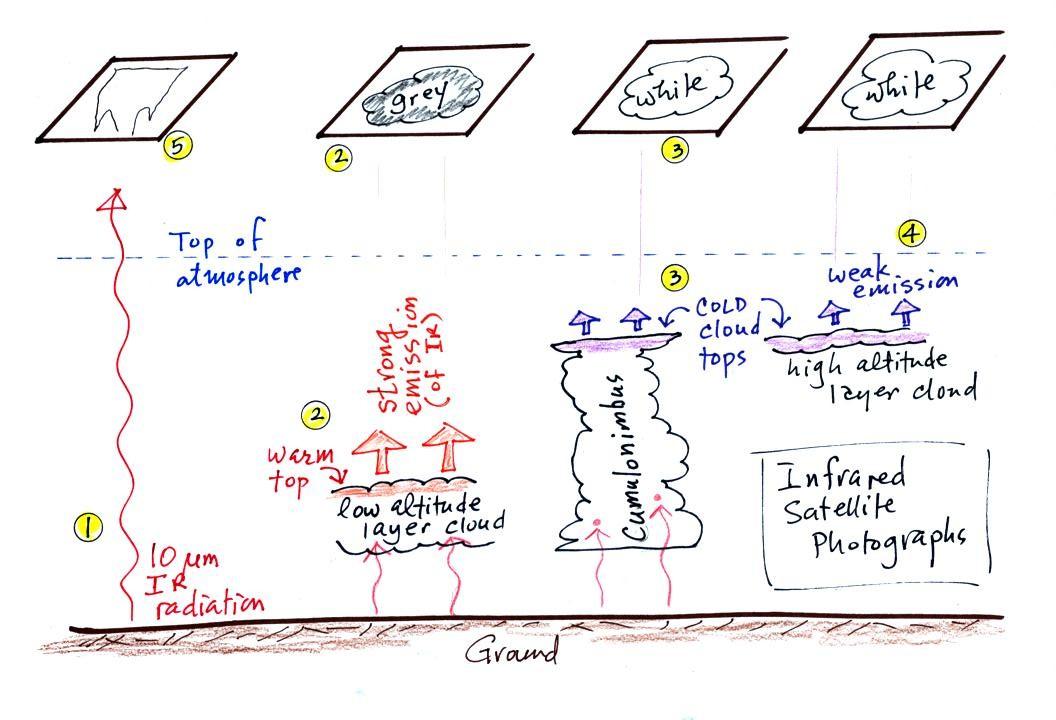 grey
white
white
5
2
3
4
Top of
atmosphere
3
weak
emission
COLD
cloud
tops
strong
emission
(of IR)
high altitude
layer cloud
2
warm
top
low altitude
layer cloud
Cumulonimbus
Infrared
Satellite
Photographs
1
10 µm
IR
radiation
Ground